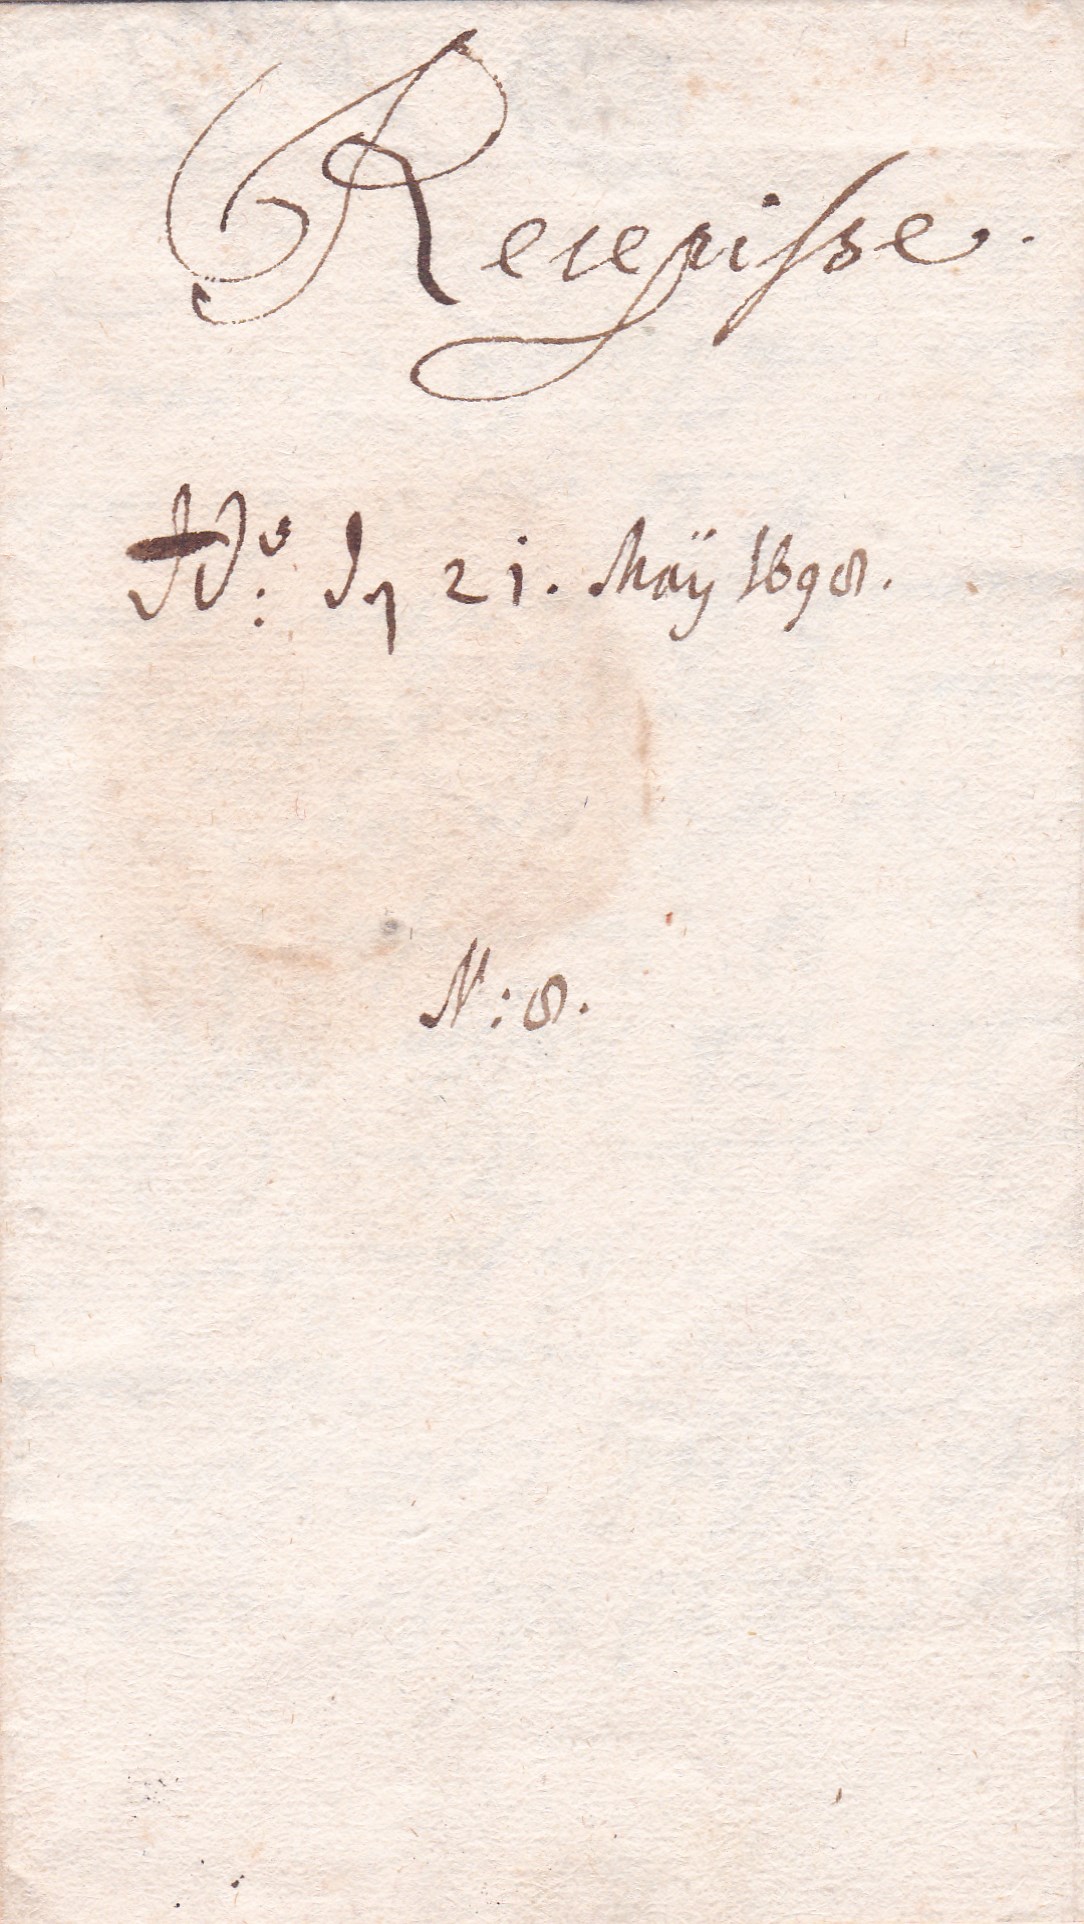 Recepisse.
dd: dn 21. Maÿ 1698.
N: 8.